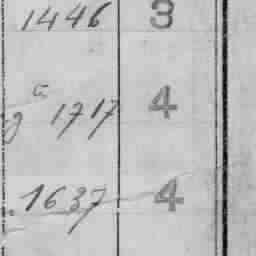 1446 3
1717 4
1637 4